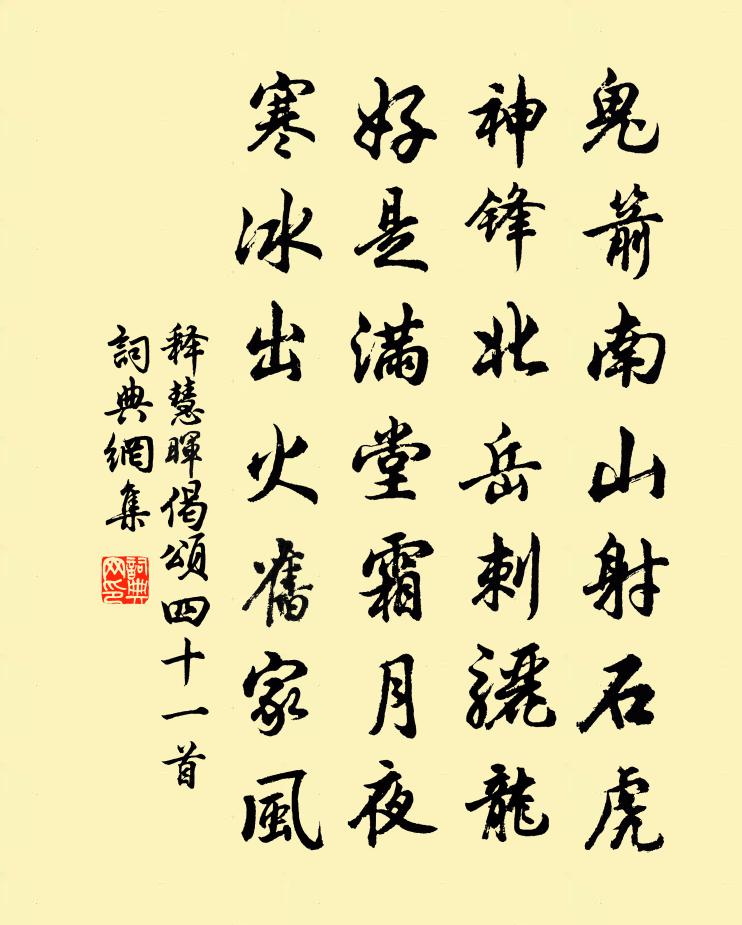 鬼箭南山射石虎
神鋒北岳刺驪龍
好是滿堂霜月夜
寒冰出火舊家風
释慧暉偈頌四十一首
詞典網集
詞典网印